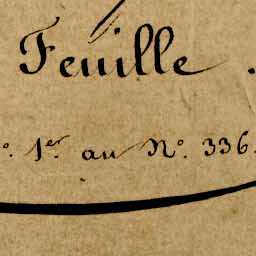 Feuille.
º. 1er. au Nº. 336.